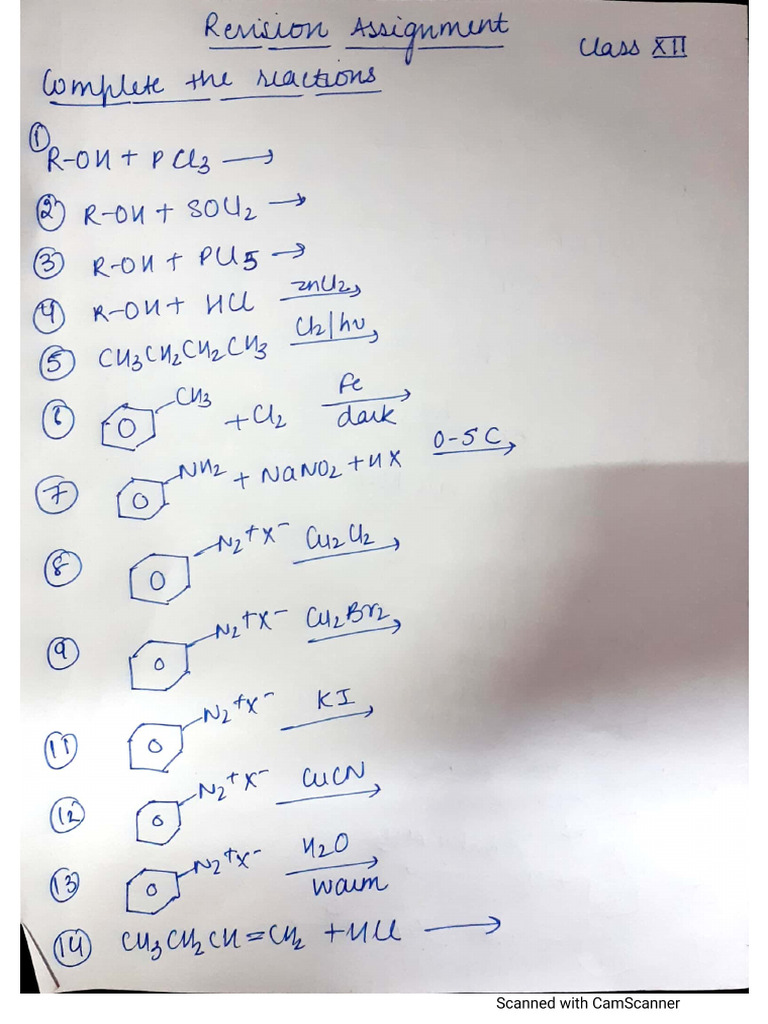 Revision Assignment
Class XII
Complete the reactions
① R-OH + PCl3 ⟶
② R-OH + SOCl2 →
③ R-OH + PCl5 →
④ R-OH + HCl ZnCl2
⑤ CH3CH2CH2CH3 Cl2/hν
⑥ CH3 + Cl2 Fe dark
⑦ NH2 + NaNO2 + HX 0-5 C
⑧ N2+X- Cu2Cl2
⑨ N2+X- Cu2Br2
⑪ N2+X- KI
⑫ N2+X- CuCN
⑬ N2+X- H2O warm
⑭ CH3CH2CH=CH2 + HCl ⟶
Scanned with CamScanner